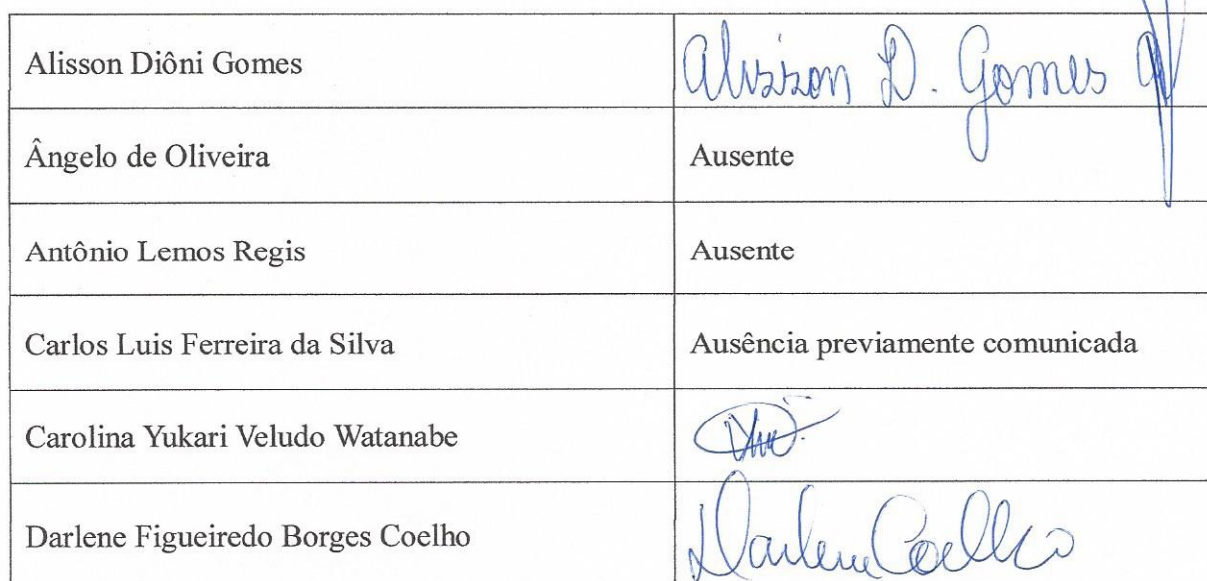 Alisson Diôni Gomes Alisson D. Gomes
Ângelo de Oliveira Ausente
Antônio Lemos Regis Ausente
Carlos Luis Ferreira da Silva Ausência previamente comunicada
Carolina Yukari Veludo Watanabe
Darlene Figueiredo Borges Coelho Darlene Coelho